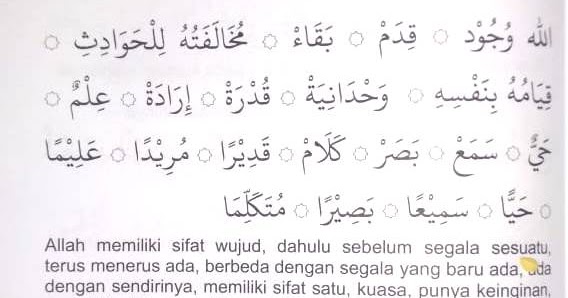 الله وُجُوْد ۞ قِدَمْ ۞ بَقَاءْ ۞ مُخَالَفَتُهُ لِلْحَوَادِثِ ۞
قِيَامُهُ بِنَفْسِهِ ۞ وَحْدَانِيَةْ ۞ قُدْرَةْ ۞ إِرَادَةْ ۞ عِلْمٌ ۞
حَيٌّ ۞ سَمَعْ ۞ بَصَرْ ۞ كَلَامْ ۞ قَدِيْرًا ۞ مُرِيْدًا ۞ عَلِيْمًا
۞ حَيًّا ۞ سَمِيْعًا ۞ بَصِيْرًا ۞ مُتَكَلِّمَا
Allah memiliki sifat wujud, dahulu sebelum segala sesuatu,
terus menerus ada, berbeda dengan segala yang baru ada, ada
dengan sendirinya, memiliki sifat satu, kuasa, punya keinginan,